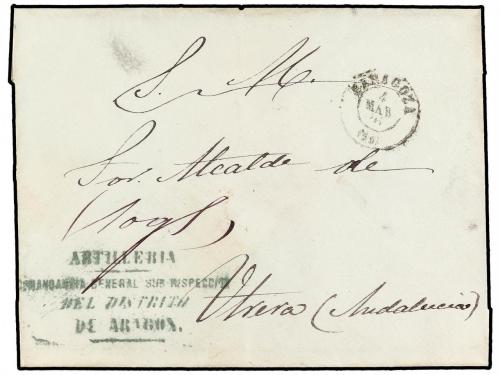 S. M.
ZARAGOZA
4
MAR
Sor. Alcalde de
ARTILLERIA
COMANDANCIA GENERAL SUB-INSPECCION
DEL DISTRITO
DE ARAGON.
Utrera (Andalucia)